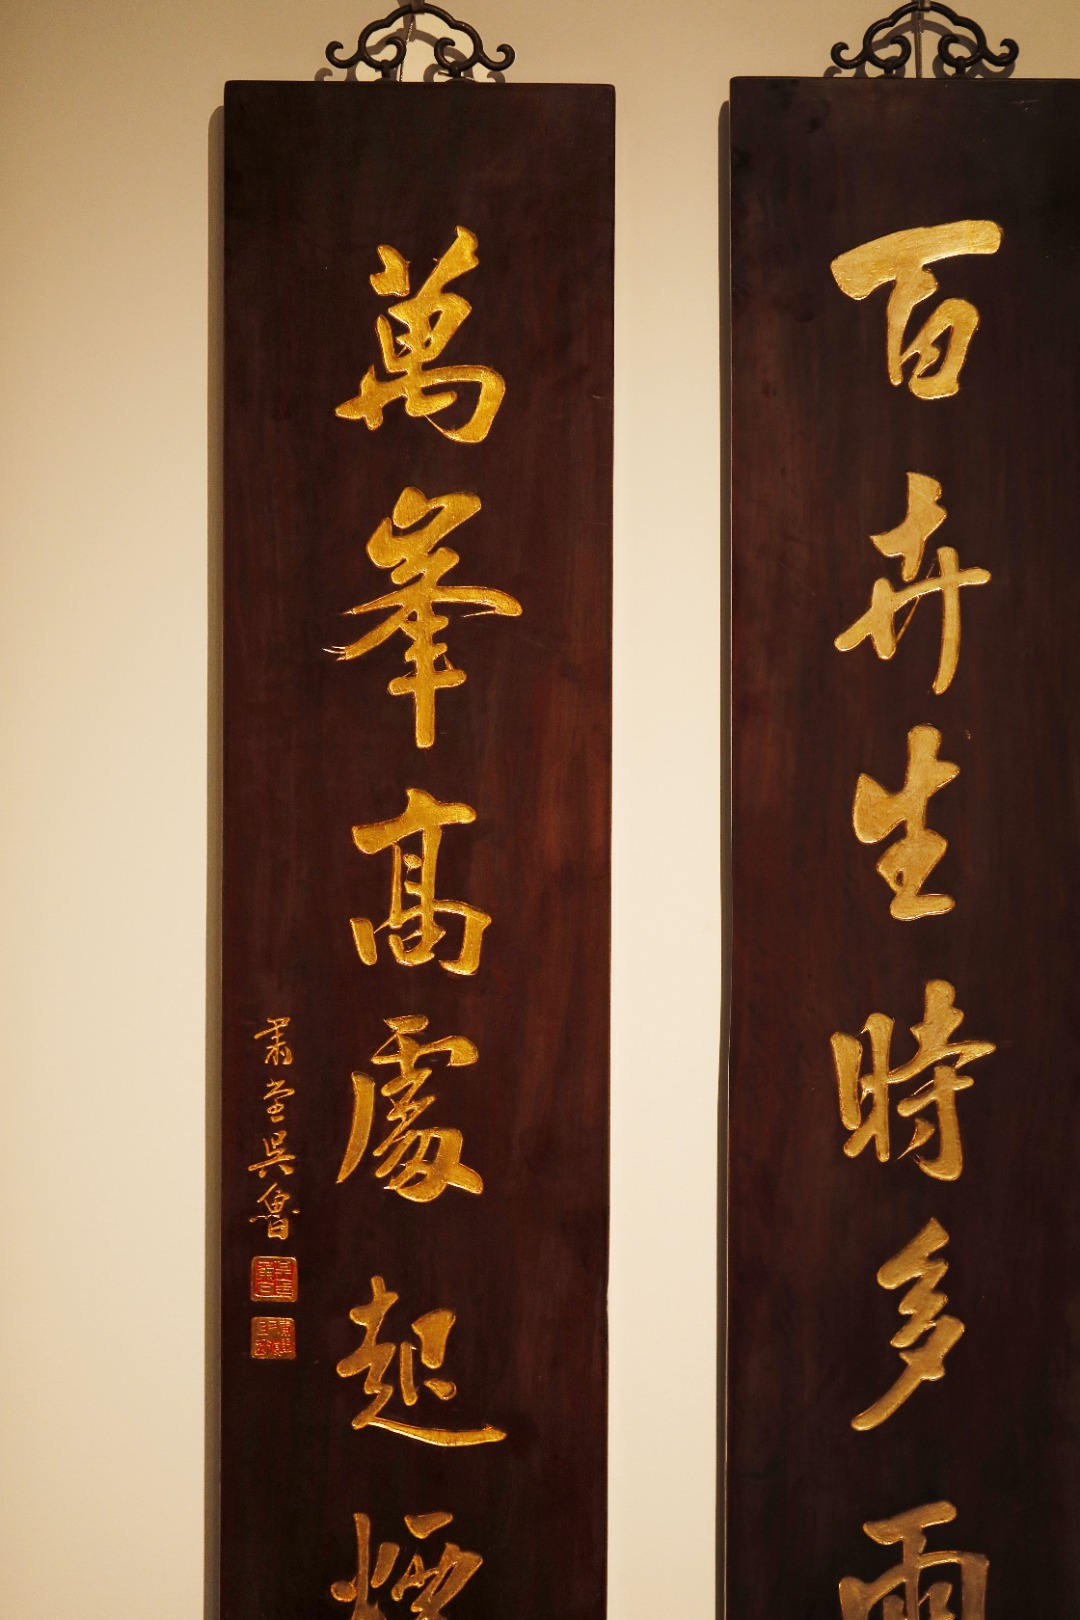 百卉生時多雨
萬峯高處起煙
肅堂吳魯